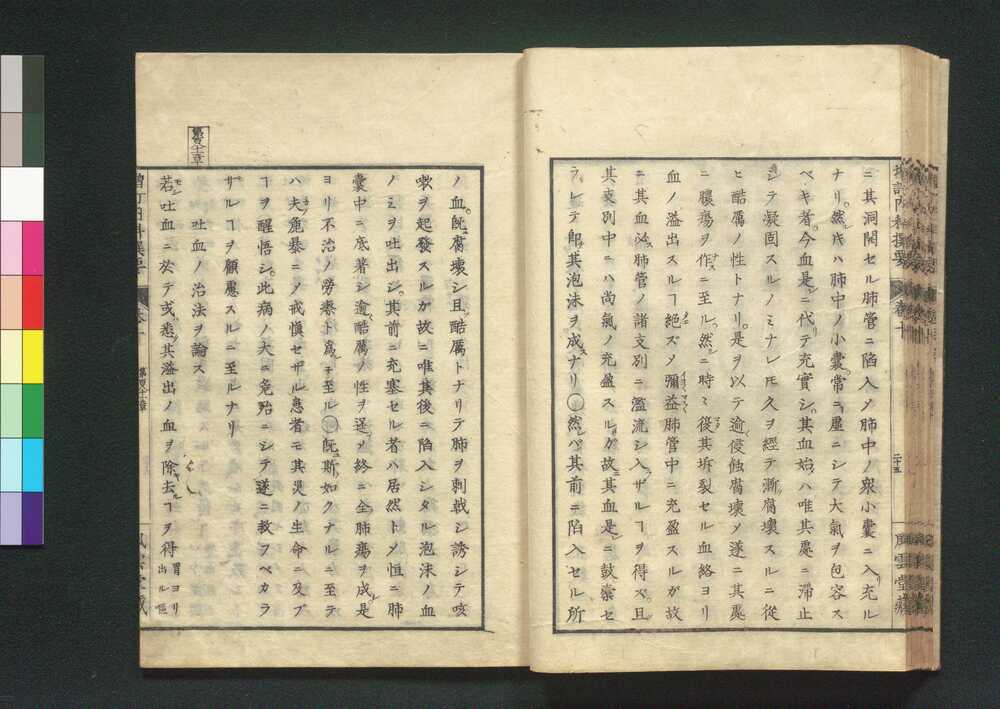 ニ其洞開セル肺管ニ陷入メ肺中ノ衆小嚢ニ入リ充ル
ナリ。然レ𪜈ハ肺中ノ小嚢。常ニ虚ニシテ大氣ヲ包容ス
ベキ者。今血是ニ代リテ充實シ。其血始メハ唯其處ニ滞止
シテ凝固スルノミナレ𪜈久ヲ經テ漸ク腐壊スルニ從
ヒ酷厲ノ性トナリ。是ヲ以テ逾侵蝕腐壊メ遂ニ其處
ニ膿瘍ヲ作スニ至ル。然ルニ時ミ復其坼裂セル血絡ヨリ
血ノ溢出スルヿ絶ズメ彌益肺管中ニ充盈スルガ故
ニ其血必ズ肺管ノ諸支別ニ濫流シ入ラザルヿヲ得ズ。且
其支別中ニハ尚氣ノ充盈スルガ故ニ其血是ニ鼓蘯セ
ラレテ。即其泡沫ヲ成スナリ〇然レバ其前ニ陷入セル所
ノ血。既ニ腐壊シ且酷厲トナリテ肺ヲ刺戟シ誘シテ咳
嗽ヲ起發スルガ故ニ唯其後ニ陷入シタル泡沫ノ血
ノミヲ吐出シ。其前ニ充塞セル者ハ居然トメ恒ニ肺
嚢中ニ底著シ逾酷厲ノ性ヲ逞メ終ニ全肺瘍ヲ成シ是
ヨリ不治ノ勞瘵ト爲ルニモ至ル〇既ニ斯如クナルニ至テ
ハ夫麁暴ニメ戒愼セザル患者モ其災ノ生命ニ及ブ
ヿヲ醒悟シ。此病ノ大ニ危殆ニシテ遂ニ救フベカラ
ザルヿヲ顧慮スルニ至ルナリ
吐血ノ治法ヲ論ス
若シ吐血ニ於テ或ハ悉ク其溢出ノ血ヲ除去ルヿヲ得 胃ヨリ出ル